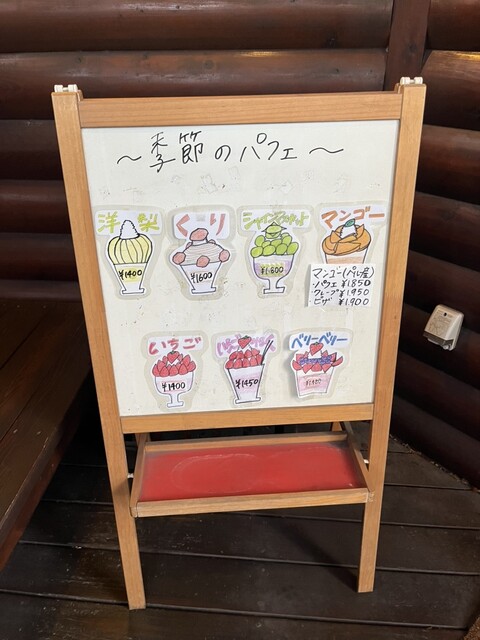 ～季節のパフェ～
洋梨
¥1400
くり
¥1600
シャインマスカット
¥1800
マンゴー
マンゴー(パルプ産)
・パフェ ¥1850
・クレープ ¥1950
・ピザ ¥1900
いちご
¥1400
¥1450
ベリーベリー